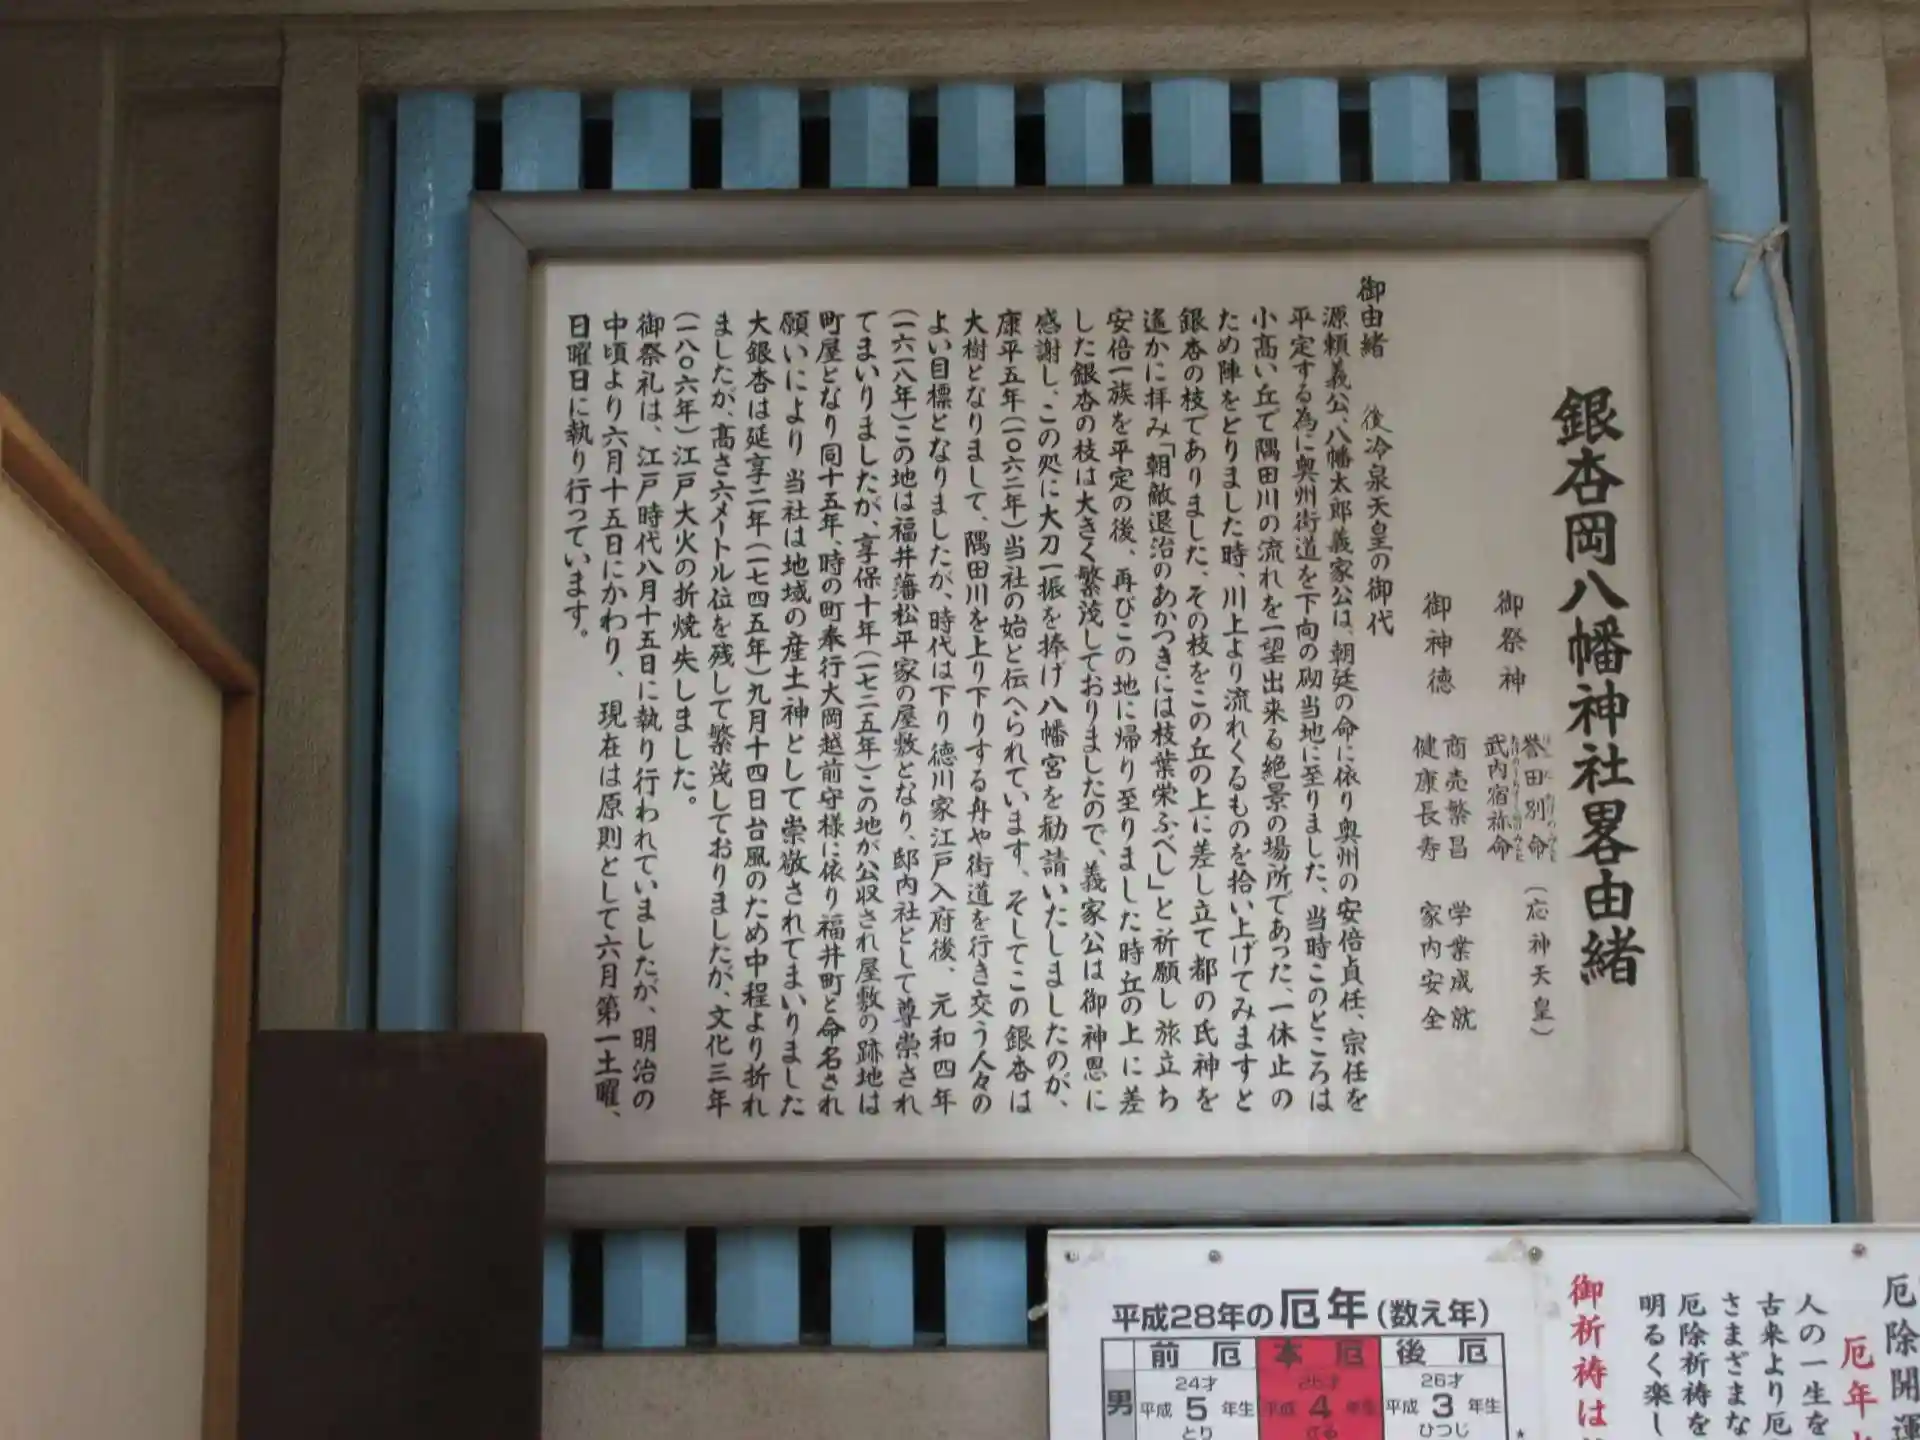 銀杏岡八幡神社畧由緒
御祭神 誉田別命(応神天皇)
武内宿祢命
御神徳 商売繁昌 学業成就
健康長寿 家内安全
御由緒 後冷泉天皇の御代
源頼義公、八幡太郎義家公は、朝廷の命に依り奥州の安倍貞任、宗任を
平定する為に奥州街道を下向の砌当地に至りました、当時このところは
小高い丘で隅田川の流れを一望出来る絶景の場所であった、一休止の
ため陣をとりました時、川上より流れくるものを拾い上げてみますと
銀杏の枝でありました、その枝をこの丘の上に差し立て都の氏神を
遙かに拝み「朝敵退治のあかつきには枝葉栄ふべし」と祈願し旅立ち
安倍一族を平定の後、再びこの地に帰り至りました時丘の上に差
した銀杏の枝は大きく繁茂しておりましたので、義家公は御神恩に
感謝し、この処に大刀一振を捧げ八幡宮を勧請いたしましたのが、
康平五年(一〇六二年)当社の始と伝へられています、そしてこの銀杏は
大樹となりまして、隅田川を上り下りする舟や街道を行き交う人々の
よい目標となりましたが、時代は下り徳川家江戸入府後、元和四年
(一六一八年)この地は福井藩松平家の屋敷となり、邸内社として尊崇され
てまいりましたが、享保十年(一七二五年)この地が公収され屋敷の跡地は
町屋となり同十五年、時の町奉行大岡越前守様に依り福井町と命名され
願いにより当社は地域の産土神として崇敬されてまいりました
大銀杏は延享二年(一七四五年)九月十四日台風のため中程より折れ
ましたが、高さ六メートル位を残して繁茂しておりましたが、文化三年
(一八〇六年)江戸大火の折焼失しました。
御祭礼は、江戸時代八月十五日に執り行われていましたが、明治の
中頃より六月十五日にかわり、現在は原則として六月第一土曜、
日曜日に執り行っています。
平成28年の厄年(数え年)
前厄 本厄 後厄
男
24才 25才 26才
平成5年生 平成4年生 平成3年生
とり さる ひつじ
厄除開運
厄年
人の一生を
古来より厄
さまざまな
厄除祈祷を
明るく楽し
御祈祷は